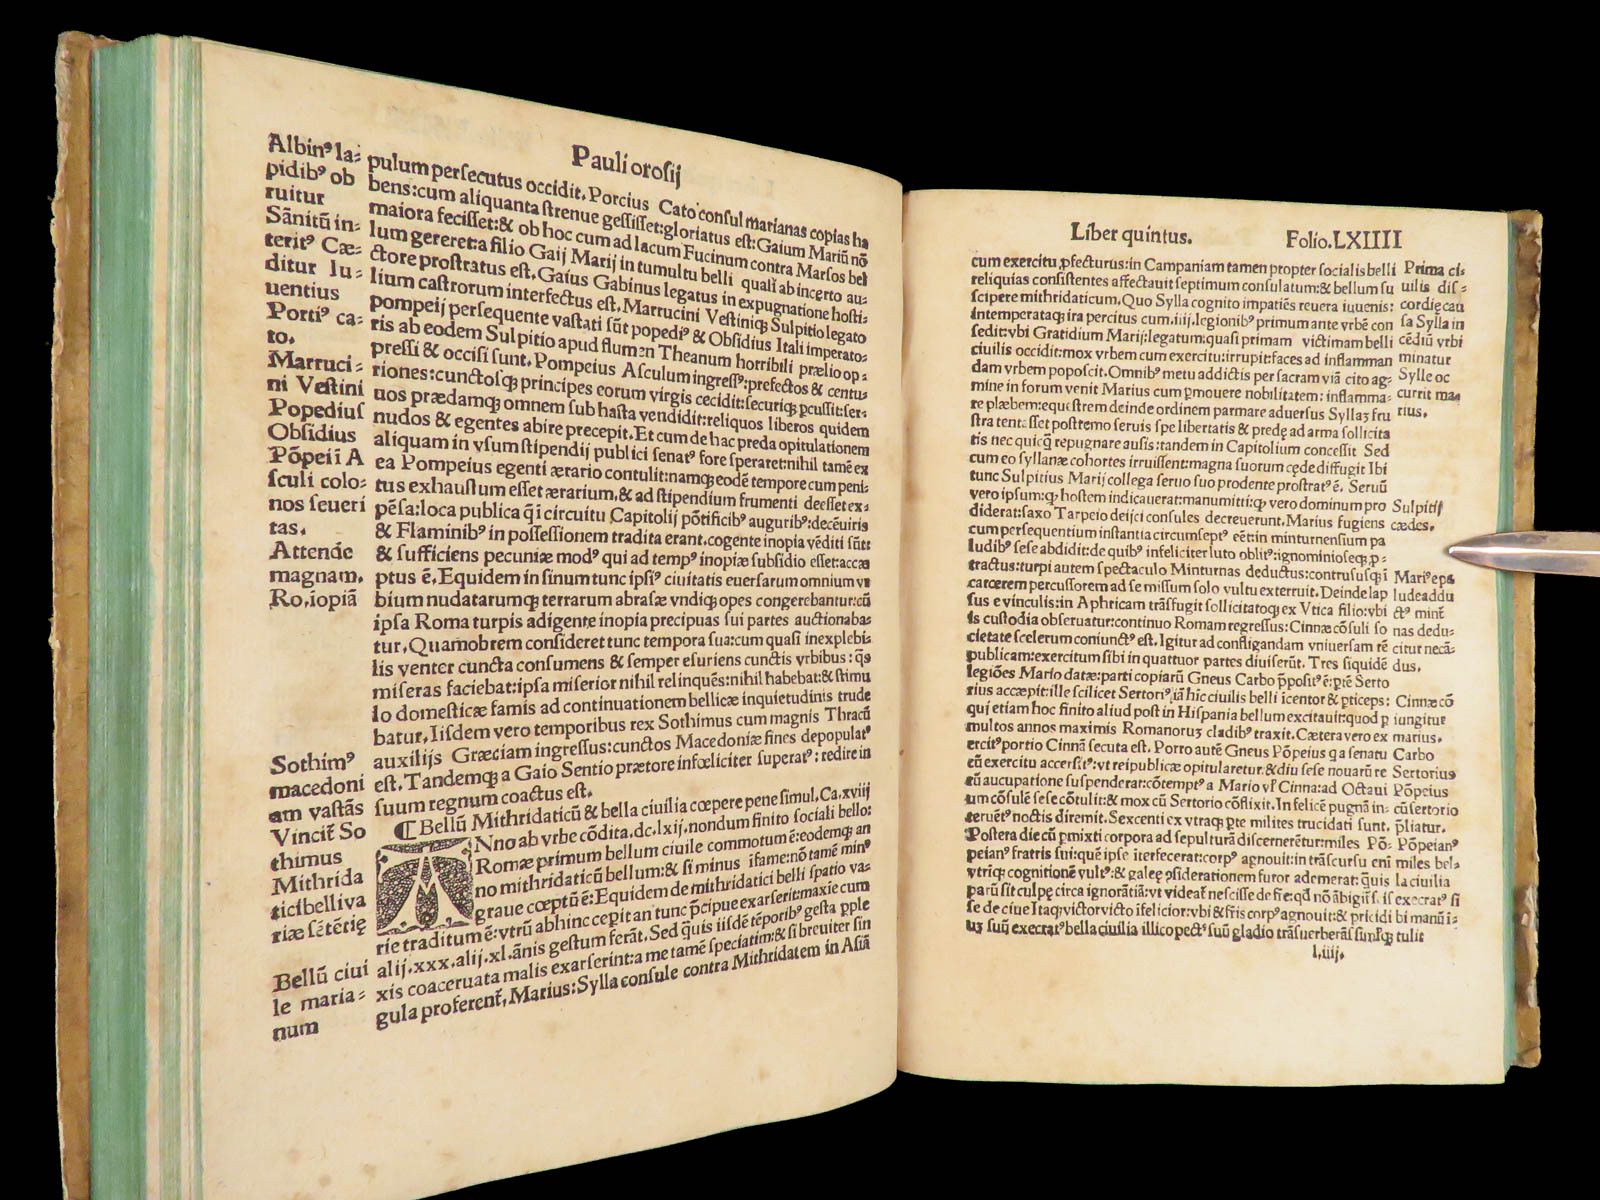 Pauli orosij
Albin⁹ la⸗
pidib⁹ ob
ruitur
Sānitū in⸗
terit⁹ Cæ⸗
ditur Iu⸗
uentius
Porti⁹ ca⸗
to.
Marruci⸗
ni Vestini
Popedius
Obsidius
Pōpeiī A
sculi colo⸗
nos seueri
tas.
Attende
magnam.
Ro.īopiā
Sothim⁹
macedoni
am vastās
Vincit̄ So
thimus
Mithrida
tici belli va
riæ sētētię
Bellū ciui
le maria⸗
num
pulum persecutus occidit. Porcius Cato consul marianas copias ha
bens: cum aliquanta strenue gessisset: gloriatus est: Gaium Mariū nō
maiora fecisset: & ob hoc cum ad lacum Fucinum contra Marsos bel
lum gereret: a filio Gaij Marij in tumultu belli quasi ab incerto au⸗
ctore prostratus est. Gaius Gabinus legatus in expugnatione hosti⸗
lium castrorum interfectus est. Marrucini Vestiniqȝ Sulpitio legato
pompeij persequente vastati sūt popedi⁹ & Obsidius Itali imperato⸗
ris ab eodem Sulpitio apud flumen Theanum horribili prælio op⸗
pressi & occisi sunt. Pompeius Asculum ingress⁹: prefectos & centu⸗
riones: cunctosqȝ principes eorum virgis cecidit: securiqȝ pcussit: ser⸗
uos prædamqȝ omnem sub hasta vendidit: reliquos liberos quidem
nudos & egentes abire precepit. Et cum de hac preda opitulationem
aliquam in vsum stipendij publici senat⁹ fore speraret: nihil tamē ex
ea Pompeius egenti ærario contulit: namqȝ eodē tempore cum peni⸗
tus exhaustum esset ærarium, & ad stipendium frumenti deesset ex⸗
pēsa: loca publica q̄ ī circuitu Capitolij pōtificib⁹ augurib⁹: decēuiris
& Flaminib⁹ in possessionem tradita erant. cogente inopia vēditi sūt
& sufficiens pecuniæ mod⁹ qui ad temp⁹ inopiæ subsidio esset: accæ
ptus ē. Equidem in sinum tunc ipsi⁹ ciuitatis euersarum omnium vr
bium nudatarumqȝ terrarum abrasæ vndiqȝ opes congerebantur: cū
ipsa Roma turpis adigente inopia precipuas sui partes auctionaba⸗
tur. Quamobrem consideret tunc tempora sua: cum quasi inexplebi⸗
lis venter cuncta consumens & semper esuriens cunctis vrbibus: q̄s
miseras faciebat: ipsa miserior nihil relinquēs: nihil habebat: & stimu
lo domesticæ famis ad continuationem bellicæ inquietudinis trude
batur. Iisdem vero temporibus rex Sothimus cum magnis Thracū
auxilijs Græciam ingressus: cunctos Macedoniæ fines depopulat⁹
est. Tandemqȝ a Gaio Sentio prætore infœliciter superat⁹: redire in
suum regnum coactus est.
¶ Bellū Mithridaticū & bella ciuilia cœpere pene simul. Ca. xviij
ANno ab vrbe cōdita. dc. lxij. nondum finito sociali bello:
Romæ primum bellum ciuile commotum ē: eodemqȝ an
no mithridaticū bellum: & si minus īfame: nō tamē min⁹
graue cœptū ē: Equidem de mithridatici belli spatio va⸗
rie traditum ē: vtrū abhinc cęperit an tunc p̄cipue exarserit: maxie cum
alij. xxx. alij. xl. ānis gestum ferāt. Sed q̄uis iisdē tēporib⁹ gesta pple
xis coaceruata malis exarserint: a me tamē speciatim: & si breuiter sin
gula proferent̄. Marius: Sylla consule contra Mithridatem in Asiā
Liber quintus. Folio. LXIIII
cum exercitu pfecturus: in Campaniam tamen propter socialis belli
reliquias consistentes affectauit septimum consulatum: & bellum su
scipere mithridaticum. Quo Sylla cognito impatiēs reuera iuuenis:
intemperataqȝ ira percitus cum. iiij. legionib⁹ primum ante vrbē con
sedit: vbi Gratidium Marij: legatum: quasi primam victimam belli
ciuilis occidit: mox vrbem cum exercitu: irrupit: faces ad inflamman
dam vrbem poposcit. Omnib⁹ metu addictis per sacram viā cito ag⸗
mine in forum venit Marius cum pmouere nobilitatem: inflamma⸗
re plæbem: equestrem deinde ordinem parmare aduersus Syllaȝ fru
stra tentasset postremo seruis spe libertatis & predę ad arma sollicita
tis nec quicq̄ repugnare ausis: tandem in Capitolium concessit Sed
cum eo syllanæ cohortes irruissent: magna suorum cęde diffugit Ibi
tunc Sulpitius Marij collega seruo suo prodente prostrat⁹ ē. Seruū
vero ipsum: qȝ hostem indicauerat: manumitti: qȝ vero dominum pro
diderat: saxo Tarpeio deijci consules decreuerunt. Marius fugiens
cum persequentium instantia circumsept⁹ eēt: in minturnensium pa
ludib⁹ sese abdidit: de quib⁹ infeliciter luto oblit⁹: ignominioseqȝ p⸗
tractus: turpi autem spectaculo Minturnas deductus: contrususqȝ ī
carcerem percussorem ad se missum solo vultu exterruit. Deinde lap
sus e vinculis: in Aphricam trāsfugit sollicitatoqȝ ex Vtica filio: vbi
is custodia obseruatur: continuo Romam regressus: Cinnæ cōsuli so
cietate scelerum coniunct⁹ est. Igitur ad confligandam vniuersam rē
publicam: exercitum sibi in quattuor partes diuiserūt. Tres siquidē
legiōes Mario datæ: parti copiarū Gneus Carbo p̄posit⁹ ē: p̄tē Serto
rius accæpit: ille scilicet Sertori⁹ iā hīc ciuilis belli īcentor & pticeps:
qui etiam hoc finito aliud post in Hispania bellum excitauit: quod p
multos annos maximis Romanoruȝ cladib⁹ traxit. Cætera vero ex
ercit⁹ portio Cinnā secuta est. Porro autē Gneus Pōpeius q a senatu
cū exercitu accersit⁹: vt reipublicæ opitularetur. & diu sese nouarū re
rū aucupatione suspenderat: cōtempt⁹ a Mario vł Cinna: ad Octaui
um cōsulē sese cōtulit: & mox cū Sertorio cōflixit. In felicē pugnā in⸗
teruēt⁹ noctis diremit. Sexcenti ex vtraqȝ pte milites trucidati sunt.
Postera die cū pmixti corpora ad sepulturā discernerētur: miles Pō⸗
peian⁹ fratris sui: quē ipse īterfecerat: corp⁹ agnouit: in trāscursu enī
vtriqȝ cognitionē vult⁹: & galeę ꝯsiderationem furor ademerat: q̄uis
parū sit culpę circa ignorātiā: vt videat̄ nescisse de fr̄e: qđ nō ābigit̄ s.
se de ciue Itaqȝ victor victo īfelicior: vbi & fr̄is corp⁹ agnouit: & pricidi
uȝ suū execrat⁹ bella ciuilia illico pect⁹ suū gladio trāsuerberās
l. iiij.
Prima ci⸗
uilis dis⸗
cordię cau
sa Sylla in
cēdiū vrbi
minatur
Sylle oc
currit ma⸗
rius.
Sulpitij
cædes.
Mari⁹ e pa
lude addu
ct⁹ mint̄
nas dedu⸗
citur necā⸗
dus.
Cinnæ cō
iungitur
marius.
Carbo
Sertorius
Pōpeius
cū sertorio
pliatur.
Pōpeian⁹
miles bel⸗
la ciuilia